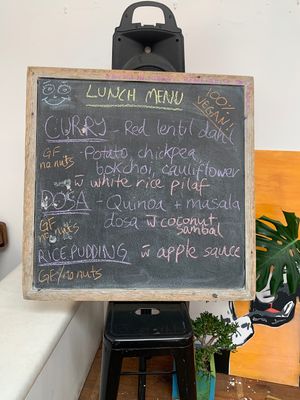 LUNCH MENU
100%
VEGAN!
CURRY - Red lentil dahl
GF Potato, chickpea
no nuts bokchoi, cauliflower
w̄ white rice pilaf
DOSA - Quinoa + masala
GF dosa w̄ coconut
no nuts sambal
RICE PUDDING w̄ apple sauce
GF/no nuts